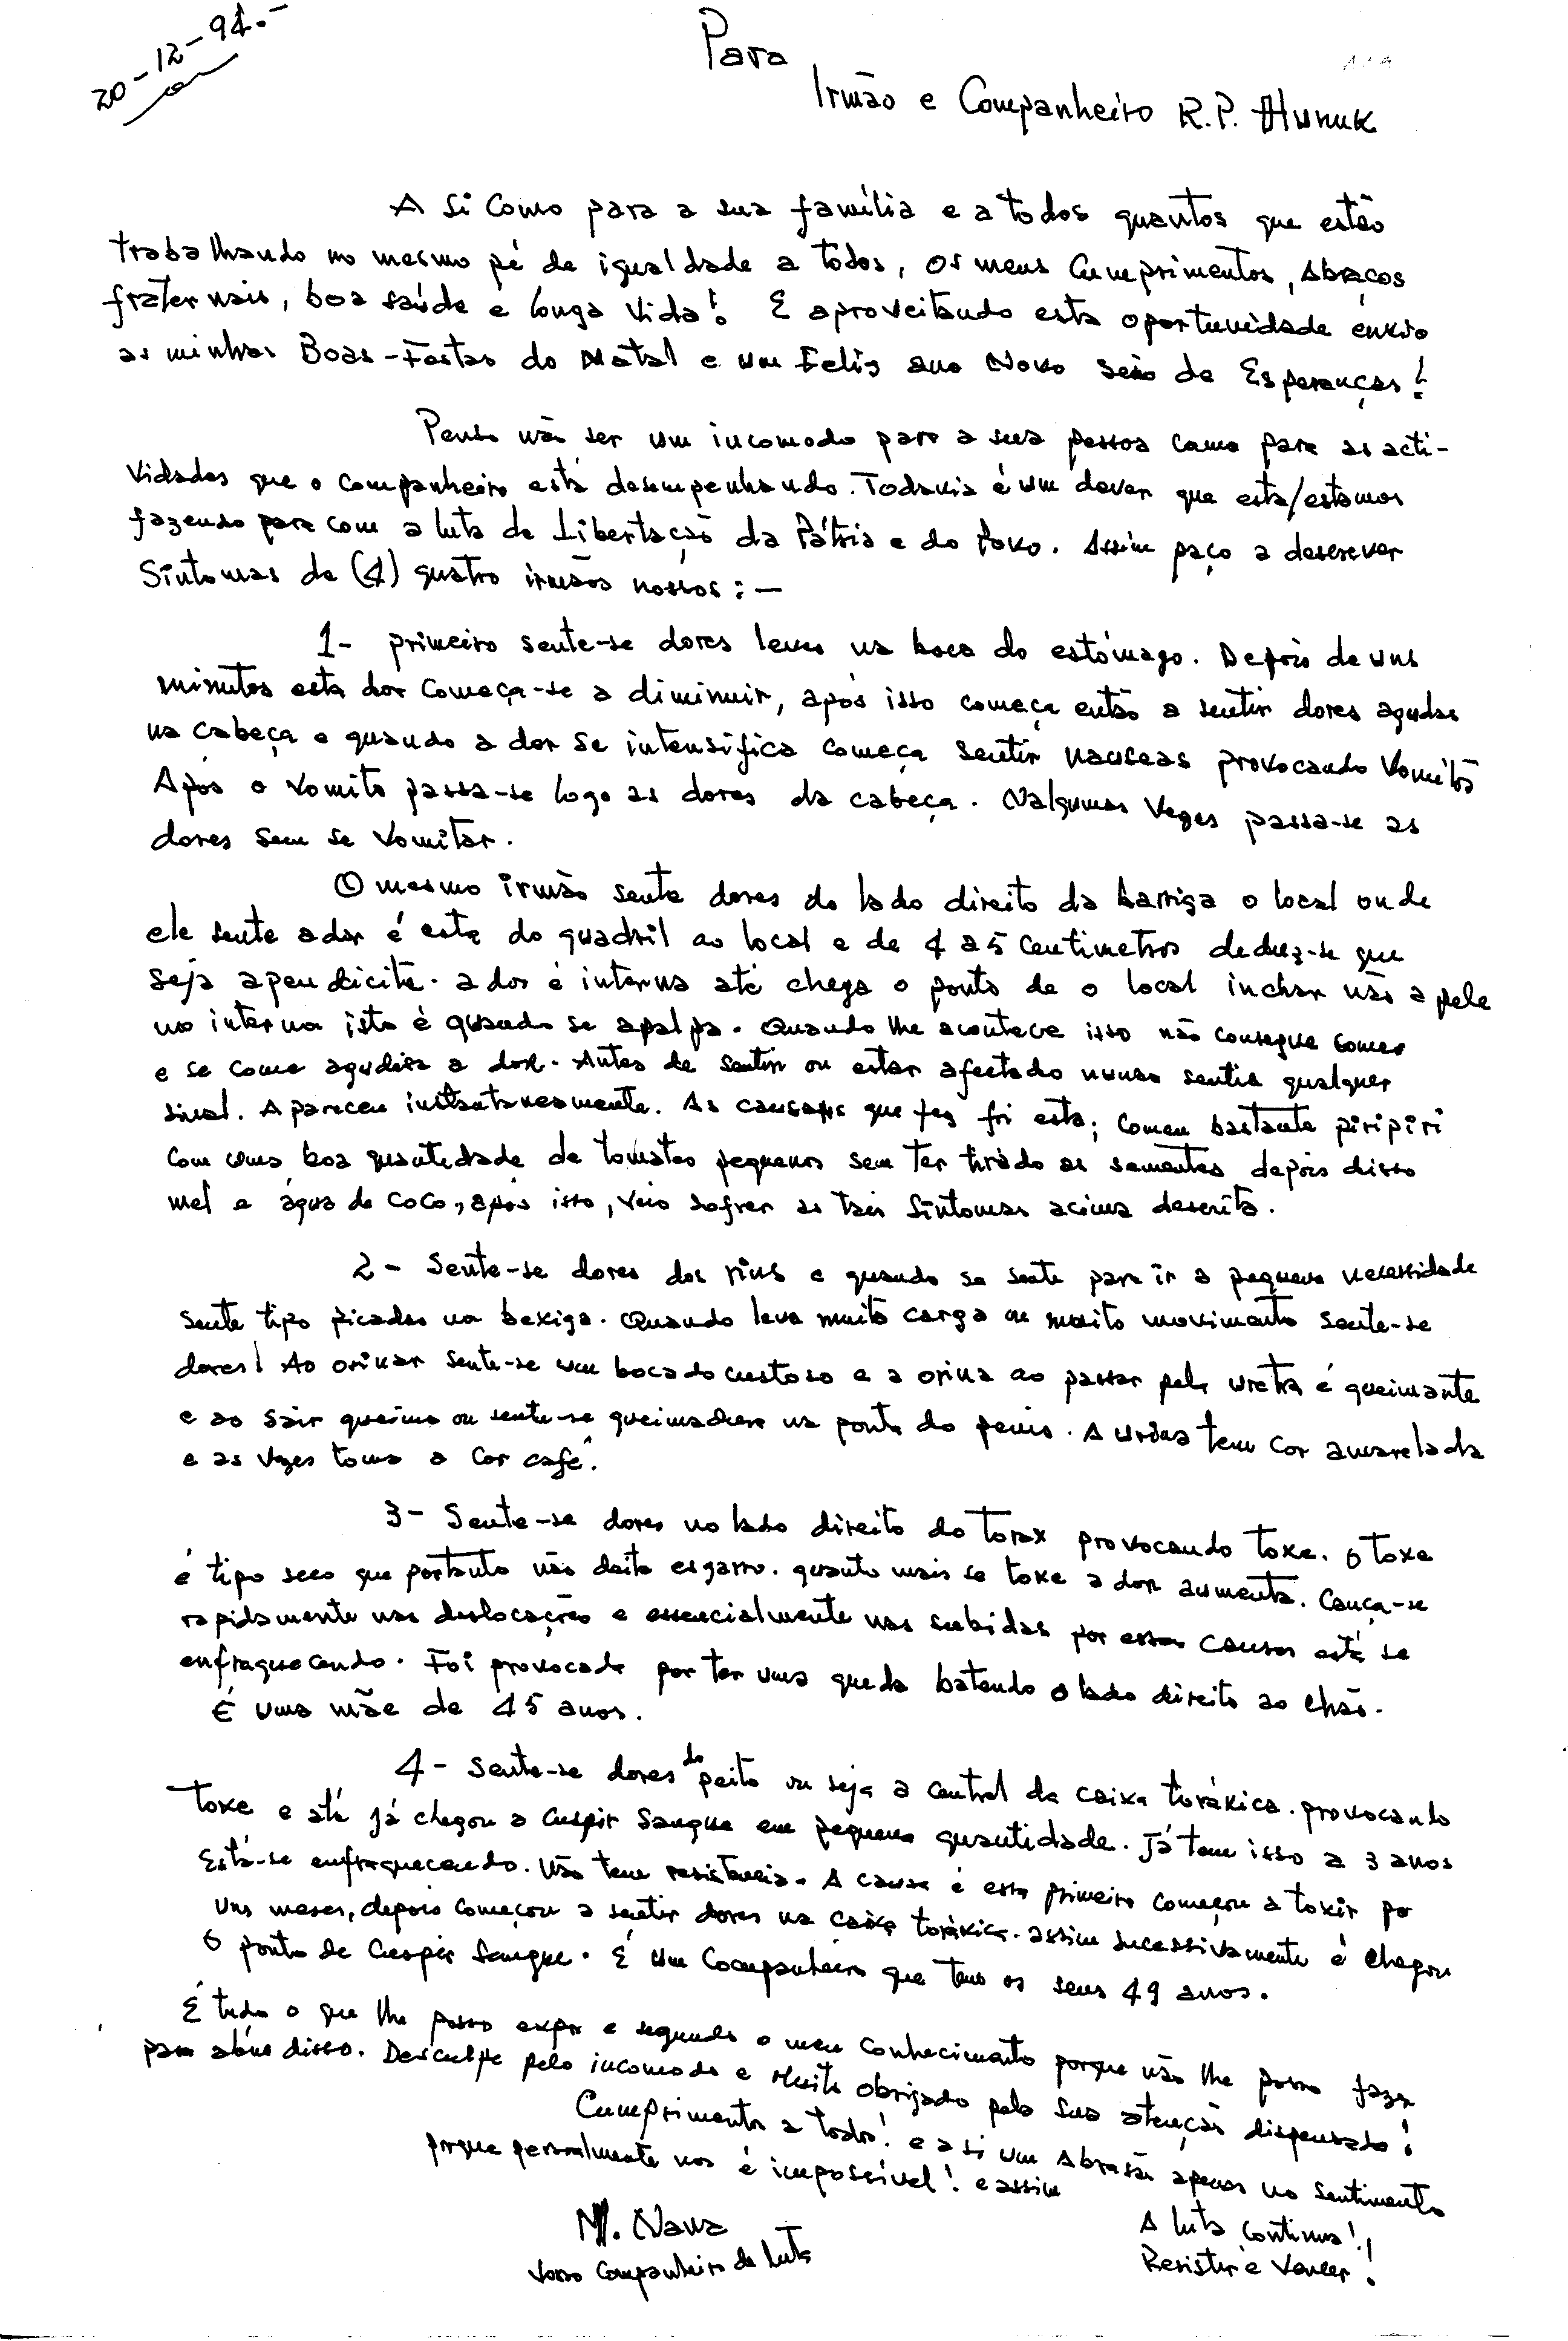 20-12-94.-
Para
Irmão e Companheiro R.P. Hunuk
A si como para a sua família e a todos quantos que estão
trabalhando no mesmo pé de igualdade a todos, os meus Cumprimentos, Abraços
fraternais, boa saúde e longa vida! E aproveitando esta oportunidade envio
as minhas Boas-Festas do Natal e um Feliz ano Novo seio de Esperanças!
Penso não ser um incomodo para a sua pessoa como para as acti-
vidades que o companheiro está desempenhando. Todavia é um dever que esta/estamos
fazendo para com a luta de Libertação da Pátria e do Povo. Assim paço a descrever
Sintomas de (4) quatro irmãos nossos:-
1- primeiro sente-se dores leves na boca do estómago. Depois de uns
minutos esta dor começa-se a diminuir, após isso começa então a sentir dores agudas
na cabeça e quando a dor se intensifica começa sentir nauseas provocando vomitos
Após o vomito passa-se logo as dores da cabeça. Nalgumas vezes passa-se as
dores sem se vomitar.
O mesmo irmão sente dores do lado direito da barriga o local onde
ele sente a dor é esta do quadril ao local e de 4 a 5 centimetros deduz-se que
seja apendicite. a dor é interna até chega o ponto de o local inchar não a pele
no interna isto é quando se apalpa. Quando lhe acontece isso não consegue comer
e se come agudiza a dor. Antes de sentir ou estar afectado nunca sentia qualquer
sinal. Apareceu instantaneamente. As causas que fez foi esta; comeu bastante piripiri
com uma boa quantidade de tomates pequenos sem ter tirado as sementes depois disso
mel e água de coco, após isso, veio sofrer as tais sintomas acima descrita.
2- Sente-se dores dos rins e quando se sente para ir a pequena necessidade
sente tipo picadas na bexiga. Quando leva muito carga ou muito movimento sente-se
dores! Ao orinar sente-se um bocado custoso e a orina ao passar pela uretra é queimante
e ao sair queima ou sente-se queimadura na ponta do penis. A urina tem cor amarelada
e as vezes toma a cor café.
3- Sente-se dores no lado direito do torax provocando toxe. O toxe
é tipo seco que portanto não deita esgarro. quanto mais se toxe a dor aumenta. Cança-se
rapidamente nas deslocações e essencialmente nas subidas por essas causas está se
enfraquecendo. Foi provocado por ter uma queda batendo o lado direito ao chão.
É uma mãe de 45 anos.
4- Sente-se dores do peito ou seja a central da caixa toráxica. provocando
toxe e até já chegou a cuspir sangue em pequena quantidade. Já tem isso a 3 anos
Está-se enfraquecendo. Não tem resistencia. A causa é esta primeiro começou a toxir po
uns meses, depois começou a sentir dores na caixa toráxica. assim sucessivamente é chegou
o ponto de cuspir sangue. É um Companheiro que tem os seus 49 anos.
É tudo o que lhe posso expor e segundo o meu conhecimento porque não lhe posso fazer
para além disso. Desculpe pelo incomodo e Muito obrigado pela sua atenção dispensado!
Cumprimentos a todos! e a si um Abrasão apenas no sentimento
porque personalmente nos é impossível! e assim
M. Nana
Vosso Companheiro de luta
A luta continua!
Resistir é Vencer!